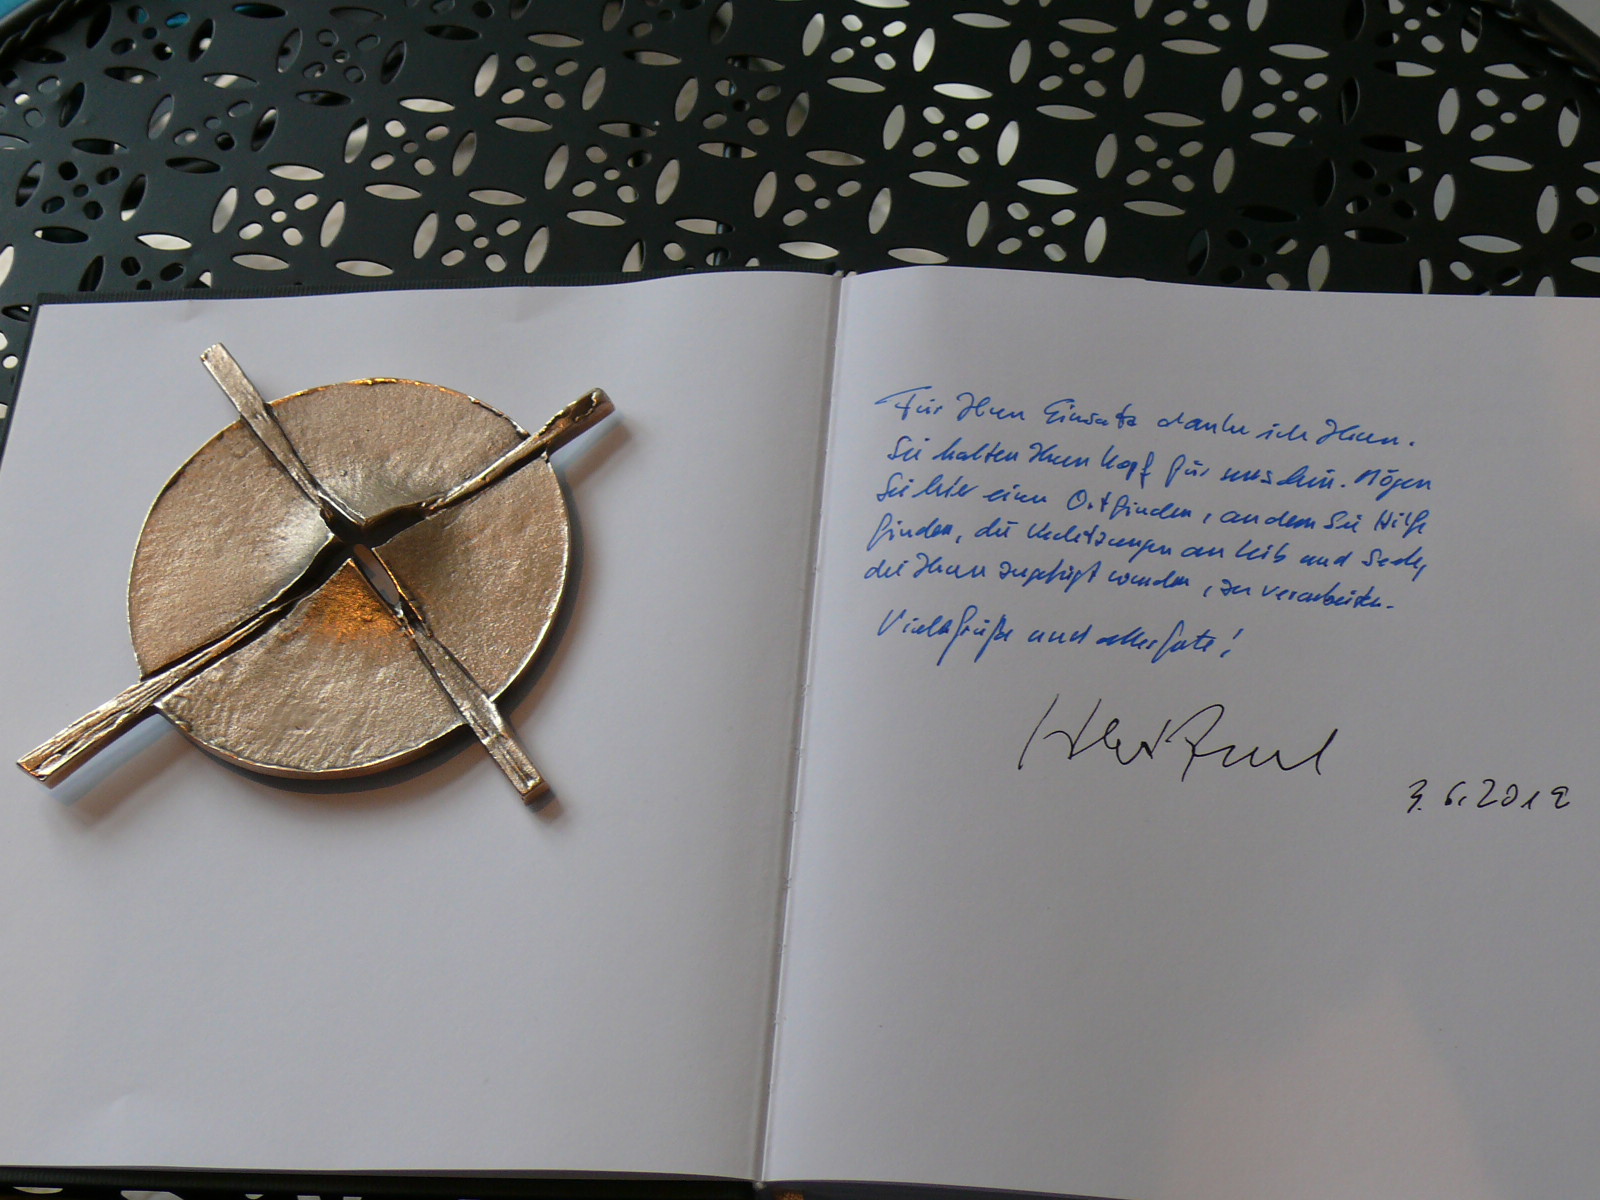 Für Ihren Einsatz danke ich Ihnen.
Sie halten Ihren Kopf für uns hin. Mögen
Sie hier einen Ort finden, an dem Sie Hilfe
finden, die Verletzungen an Leib und Seele,
die Ihnen zugefügt wurden, zu verarbeiten.
Viele Grüße und alles Gute!
3.6.2012